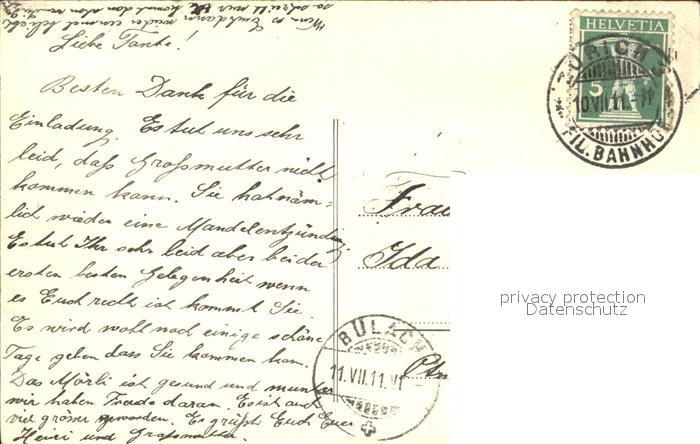 Liebe Tante!
Besten Dank für die
Einladung. Es tut uns sehr
leid, daß Großmutter nicht
kommen kann. Sie hat näm-
lich wieder eine Mandelentzündung
Es tut Ihr sehr leid aber bei der
ersten besten Gelegenheit wenn
es Euch recht ist kommt Sie.
Es wird wohl noch einige schöne
Tage geben dass Sie kommen kan.
Das Mörli ist gesund und munter
wir haben Freude daran. Es ist auch
viel grösser geworden. Es grüßt Euch Euer
Heiri und Grossmutter.
HELVETIA
5
ZÜRICH
10.VII.11.
FIL. BAHNHOF
Frau
Ida
BÜLACH
11.VII.11.VI
privacy protection
Datenschutz